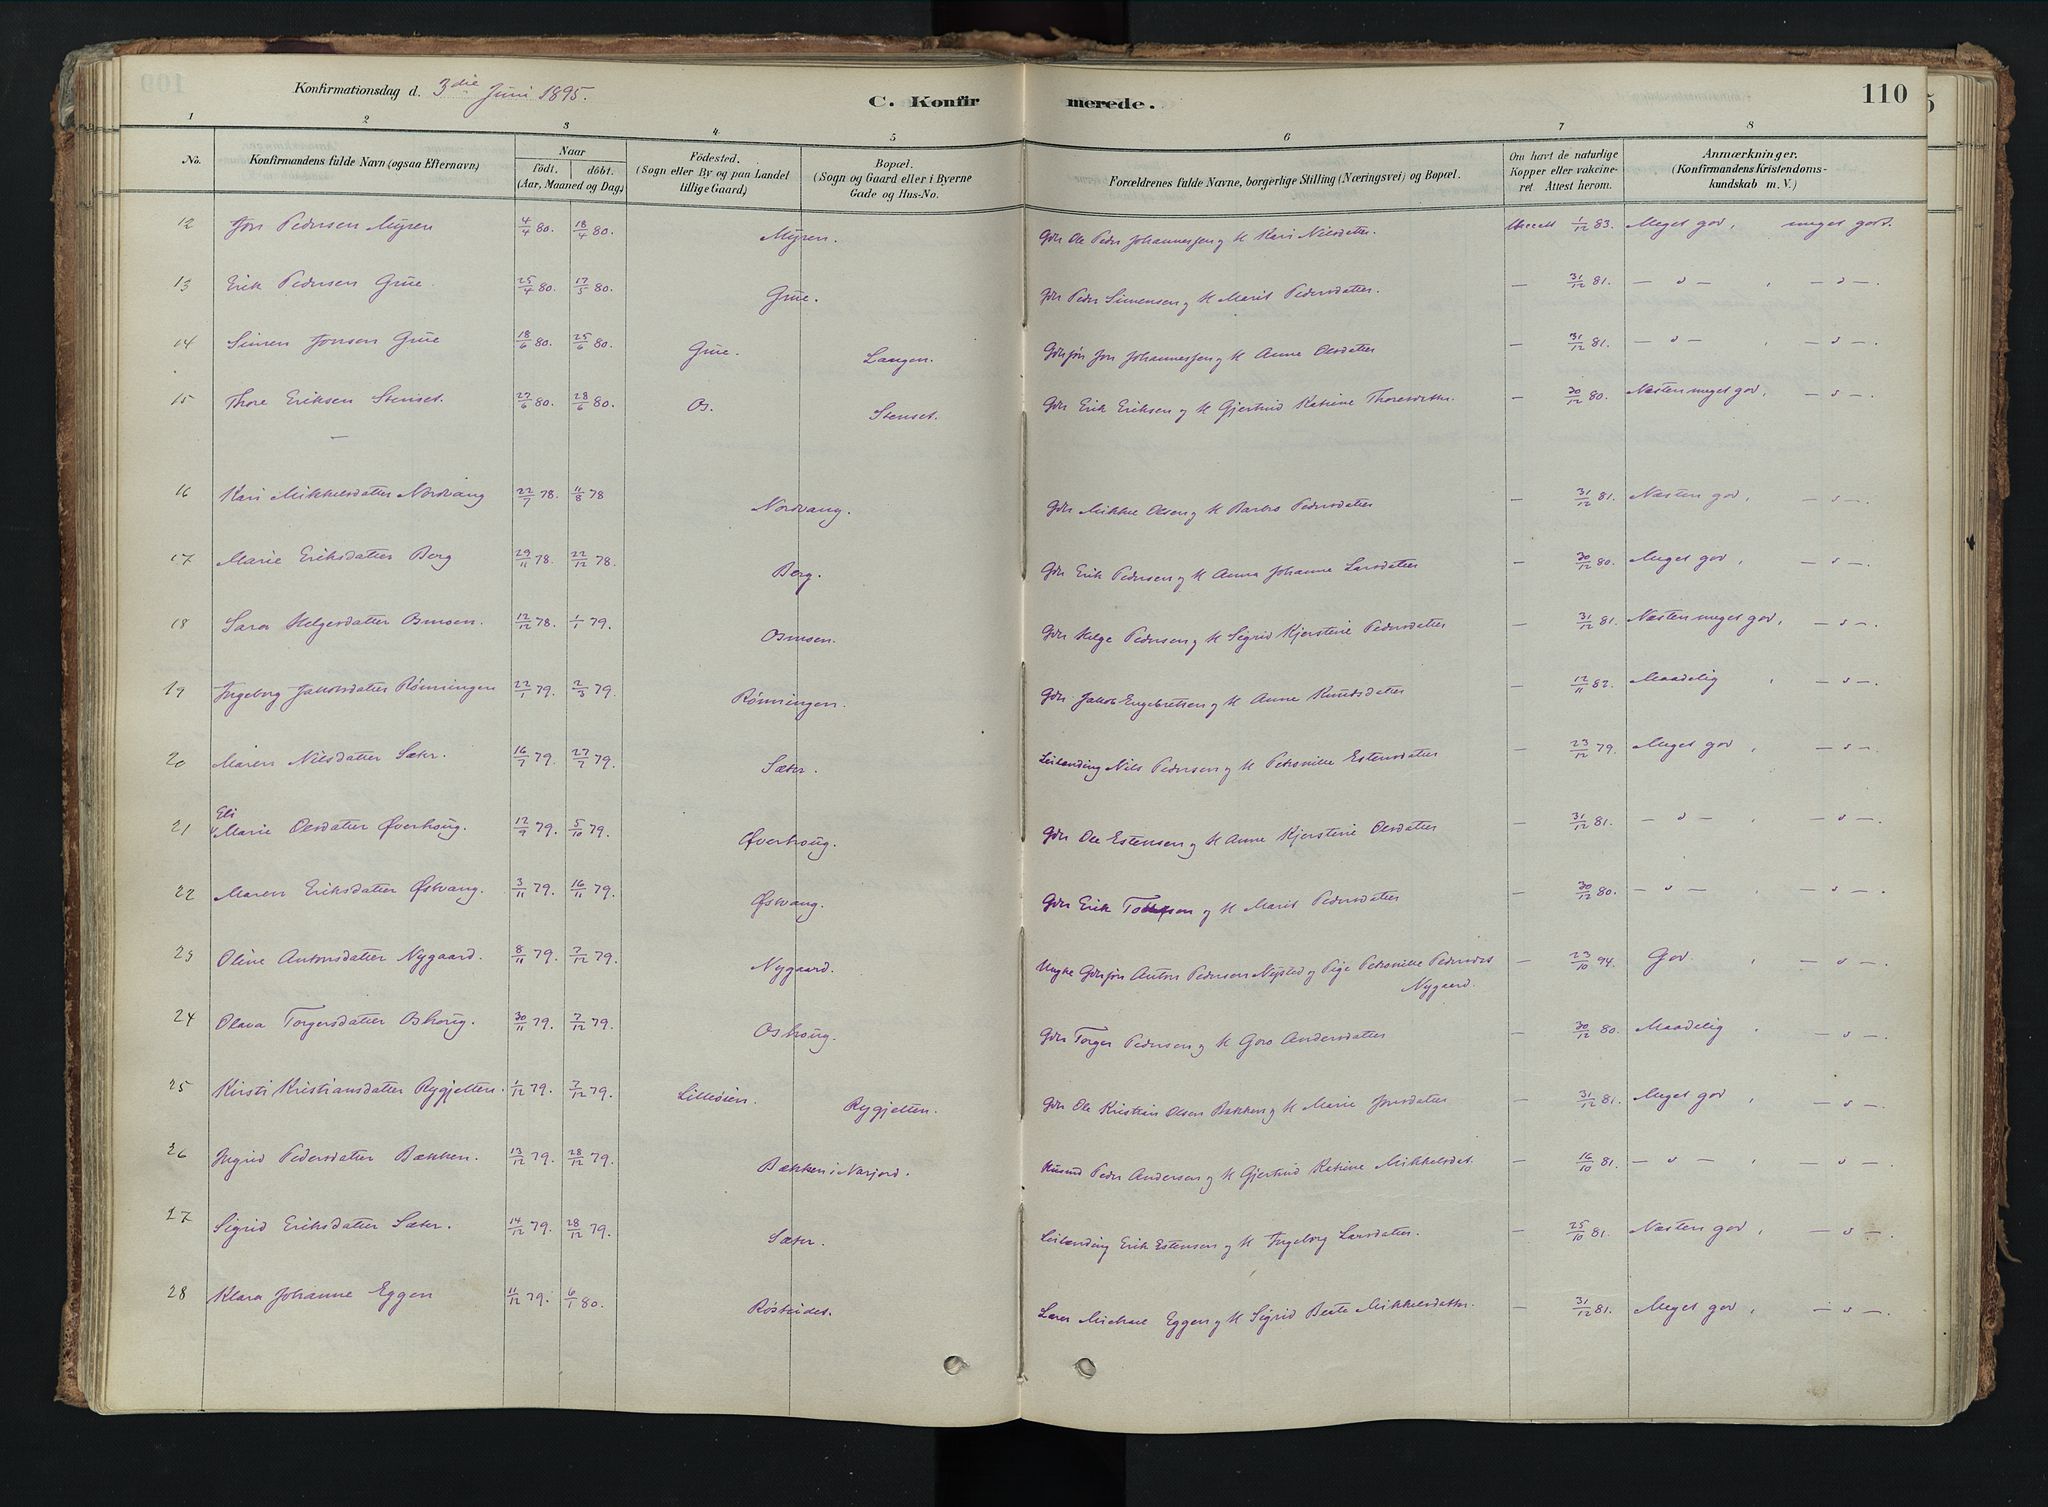 Konfirmationsdag d. 3die Juni 1895.
C. Konfirmerede.
110
1 2 3 4 5 6 7 8
No. Konfirmandens fulde Navn (ogsaa Efternavn) Naar födt. döbt. (Aar, Maaned og Dag) Födested. (Sogn eller By og paa Landet tillige Gaard) Bopæl. (Sogn og Gaard eller i Byerne Gade og Hus-No. Forældrenes fulde Navne, borgerlige Stilling (Næringsvei) og Bopæl. Om havt de naturlige Kopper eller vakcineret Attest herom. Anmærkninger. (Konfirmandens Kristendomskundskab m. V.)
12 Jon Pedersen Myren 4/4 80. 18/4 80. Myren. Gdr Ole Peder Johannessen og H Kari Nilsdatter. 1/12 83. Meget god, meget godt.
13 Erik Pedersen Grue 25/4 80. 17/5 80. Grue. Gdr Peder Simensen og H Marit Pedersdatter. — 31/12 81. — " — , — " —.
14 Simen Jonsen Grue 18/6 80. 25/6 80. Grue. Langen. Gdrsøn Jon Johannessen og H Anne Olsdatter — 31/12 81. — " — , — " —.
15 Thore Eriksen Stenset. 27/6 80. 28/6 80. Os. Stenset. Gdr Erik Eriksen og H Gjertrud Katrine Thoresdatter. — 30/12 80. Næsten meget god, — " —.
—
16 Kari Mikkelsdatter Nordvang 22/7 78. 11/8 78 Nordvang. Gdr Mikkel Olsen og H Barbro Pedersdatter — 31/12 81. Næsten god, — " —.
17 Marie Eriksdatter Berg 29/11 78. 22/12 78. Berg. Gdr Erik Pedersen og H Anna Johanne Larsdatter — 30/12 80. Meget god, — " —.
18 Sara Helgesdatter Osmoen. 12/12 78. 1/1 79. Osmoen. Gdr Helge Pedersen og H Sigrid Kjerstine Pedersdatter — 31/12 81. Næsten meget god, — " —.
19 Ingeborg Jakobsdatter Rønningen 22/1 79. 2/3 79. Rønningen. Gdr Jakob Engebretsen og H Anne Knudsdatter — 12/11 82. Maadelig , — " —.
20 Maren Nilsdatter Sæter. 16/7 79. 27/7 79. Sæter. Leilænding Nils Pedersen og H Petronille Estensdatter — 23/12 79. Meget god , — " —.
21 Eli Marie Olsdatter Øverhoug. 12/9 79. 5/10 79. Øverhoug. Gdr Ole Estensen og H Anne Kjerstine Olsdatter — 31/12 81. — " — , — " —.
22 Maren Eriksdatter Østvang. 3/11 79. 16/11 79. Østvang. Gdr Erik og H Marit Pedersdatter — 30/12 80. — " — , — " —.
23 Oline Antonsdatter Nygaard. 8/11 79. 7/12 79. Nygaard. Ungke Gdrsøn Anton Pedersen Nysted og Pige Petronille Pedersdt — 23/10 94. God , — " —.
Nygaard.
24 Olava Torgersdatter Oshoug. 30/11 79. 7/12 79. Oshoug. Gdr Torger Pedersen og H Goro Andersdatter — 30/12 80. Maadelig , — " —.
25 Kirsti Kristiansdatter Rygjetten. 1/12 79. 7/12 79. Lilleøien. Rygjetten. Gdr Ole Kristian Olsen Bakken og H Marie Jonsdatter — 31/12 81. Meget god , — " —.
26 Ingrid Pedersdatter Bækken. 13/12 79. 28/12 79. Bækken i Narjord. Husmd Peder Andersen og H Gjertrud Katrine Mikkelsdat. — 16/10 81. — " — , — " —.
27 Sigrid Eriksdatter Sæter. 14/12 79. 28/12 79. Sæter. Leilænding Erik Estensen og H Ingeborg Larsdatter. — 25/10 81. Næsten god , — " —.
28 Klara Johanne Eggen 11/12 79. 6/1 80. Lærer Michael Eggen og H Sigrid Beate Mikkelsdatter. — 31/12 81. Meget god , — " —.